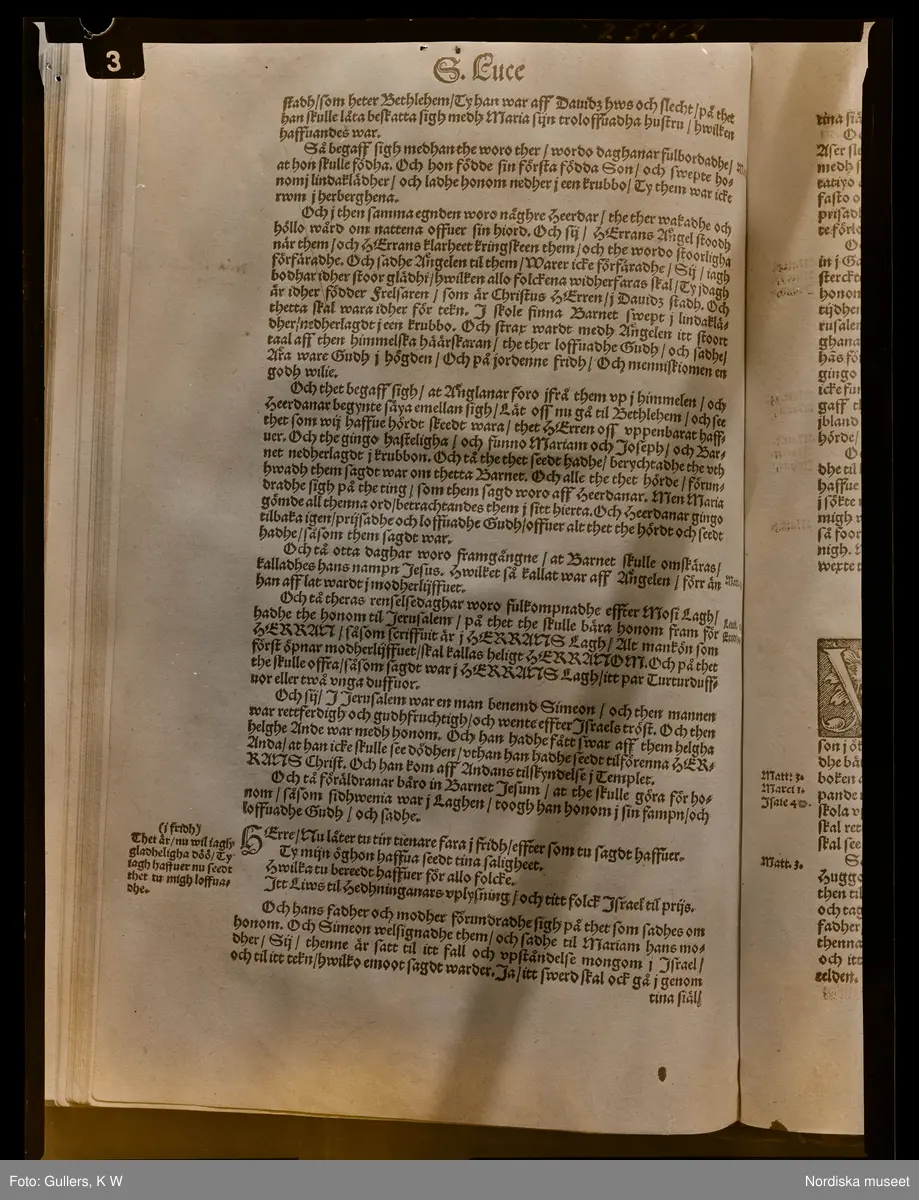 3
S. Luce
stadh/som heter Bethlehem/Ty han war aff Dauidz hws och slecht/på thet
han skulle låta beskatta sigh medh Maria sijn troloffuadha hustru/hwilken
haffuandes war.
Så begaff sigh medhan the woro ther/wordo daghanar fulbordadhe/
at hon skulle födha. Och hon födde sin första födda Son/och swepte ho-
nom j lindaklädher/och ladhe honom nedher j een krubbo/Ty them war icke
rwm j herberghena.
Och j then samma egnden woro näghre Heerdar/the ther wakadhe och
höllo wård om nattena offuer sin hiord. Och sij/HErrans Ängel stoodh
när them/och HErrans klarheet kringskeen them/och the wordo stoorligha
förfäradhe. Och sadhe Ängelen til them/Warer icke förfäradhe/Sij/iagh
bodhar idher stoor glädhi/hwilken allo folckena widherfaras skal/Ty j dagh
är idher födder Frelsaren/som är Christus HErren/j Dauidz stadh. Och
thetta skal wara idher för tekn. I skole finna Barnet swept j lindaklä-
dher/nedherlagdt j een krubbo. Och strax wardt medh Ängelen itt stoort
taal aff then himmelska häärskaran/the ther loffuadhe Gudh/och sadhe/
Ära ware Gudh j högden/Och på jordenne fridh/Och menniskiomen en
godh wilie.
Och thet begaff sigh/at Änglanar foro jfrå them vp j himmelen/och
Heerdanar begynte säya emellan sigh/Låt oss nu gå til Bethlehem/och see
thet som wij haffue hördt skeedt wara/thet HErren oss vppenbarat haff-
uer. Och the gingo hasteligha/och funno Mariam och Joseph/och Bar-
net nedherlagdt j krubbon. Och tå the thet seedt hadhe/berychtadhe the vth
hwadh them sagdt war om thetta Barnet. Och alle the thet hörde/förun-
dradhe sigh på the ting/som them sagd woro aff Heerdanar. Men Maria
gömde all thenna ord/betrachtandes them j sitt hierta. Och Heerdanar gingo
tilbaka igen/prijsadhe och loffuadhe Gudh/offuer alt thet the hördt och seedt
hadhe/såsom them sagdt war.
Och tå otta daghar woro framgångne/at Barnet skulle omskäras/
kalladhes hans nampn Jesus. Hwilket så kallat war aff Ängelen/förr än
han afflat wardt j modherlijffuet.
Och tå theras renselsedaghar woro fulkompnadhe effter Mosi Lagh/
hadhe the honom til Jerusalem/på thet the skulle bära honom fram för
HERRAN/såsom scriffuit är j HERRANS Lagh/Alt mankön som
först öpnar modherlijffuet/skal kallas heligt HERRANOM. Och på thet
the skulle offra/såsom sagdt war j HERRANS Lagh/itt par Turturduff-
uor eller twå vnga duffuor.
Och sij/I Jerusalem war en man benemd Simeon/och then mannen
war rettferdigh och gudhfruchtigh/och wente effter Israels tröst. Och then
helghe Ande war medh honom. Och han hadhe fått swar aff them helgha
Anda/at han icke skulle see dödhen/vthan han hadhe seedt tilförenna HER-
RANS Christ. Och han kom aff Andans tilskyndelse j Templet.
Och tå föräldranar båro in Barnet Jesum/at the skulle göra för ho-
nom/såsom sidhwenia war j Laghen/toogh han honom j sin fampn/och
loffuadhe Gudh/och sadhe.
HErre/Nu låter tu tin tienare fara j fridh/effter som tu sagdt haffuer.
Ty mijn öghon haffua seedt tina saligheet.
Hwilka tu bereedt haffuer för allo folcke.
Itt Liws til Hedhninganars vplysning/och titt folck Israel til prijs.
Och hans fadher och modher förundradhe sigh på thet som sadhes om
honom. Och Simeon welsignadhe them/och sadhe til Mariam hans mo-
dher/Sij/thenne är satt til itt fall och vpståndelse mongom j Israel/
och til itt tekn/hwilko emoot sagdt warder. Ja/itt swerd skal ock gå j genom
tina siäl/
(j fridh)
Thet är/nu wil iagh
gladheligha döö/Ty
iagh haffuer nu seedt
thet tu migh loffua-
dhe.
tina siä
Oc
Aser sle
medh s
fasto o
prisad
te förlo
in j Ga
stercke
honom
tijdhen
rusalem
ghana
häs fö
gingo
icke fun
gaff t
jbland
hörde/
dhe til
haffue
j sökte
migh
så foor
nigh.
wexte t
Matt. 3.
Marci 1.
Isaie 40.
son j
dhe
boken
pande
skola
skal ret
skal see
Matt. 3.
Hugge
then til
och tag
fadher
thenna
och itt
zelden.
Foto: Gullers, K W
Nordiska museet